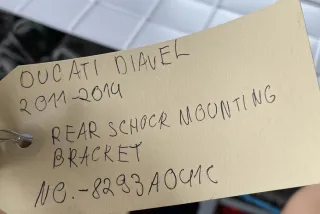 DUCATI DIAVEL
2011-2014
REAR SCHOCK MOUNTING
BRACKET
NO.-8293A041C